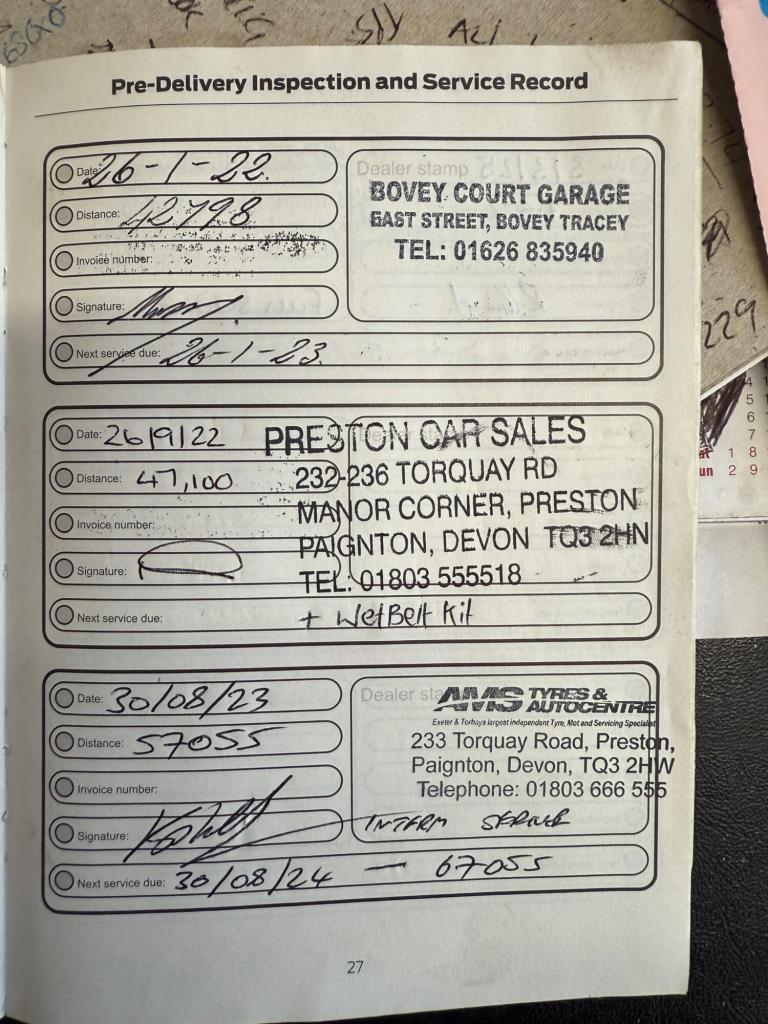 SIY ALI
Pre-Delivery Inspection and Service Record
Date: 26-1-22.
Distance: 42798
Invoice number:
Signature:
Next service due: 26-1-23.
Dealer stamp
BOVEY COURT GARAGE
EAST STREET, BOVEY TRACEY
TEL: 01626 835940
229
Date: 26/9/22
Distance: 47,100
Invoice number:
Signature:
Next service due:
PRESTON CAR SALES
232-236 TORQUAY RD
MANOR CORNER, PRESTON
PAIGNTON, DEVON TQ3 2HN
TEL: 01803 555518
+ WetBelt Kit
4
5
6
7
1 8
un 2 9
Date: 30/08/23
Distance: 57055
Invoice number:
Signature:
Next service due: 30/08/24 — 67055
Dealer sta
AMS TYRES & AUTOCENTRE
Exeter & Torbays largest independent Tyre, Mot and Servicing Specialist
233 Torquay Road, Preston,
Paignton, Devon, TQ3 2HW
Telephone: 01803 666 555
INTERM SERVICE
27